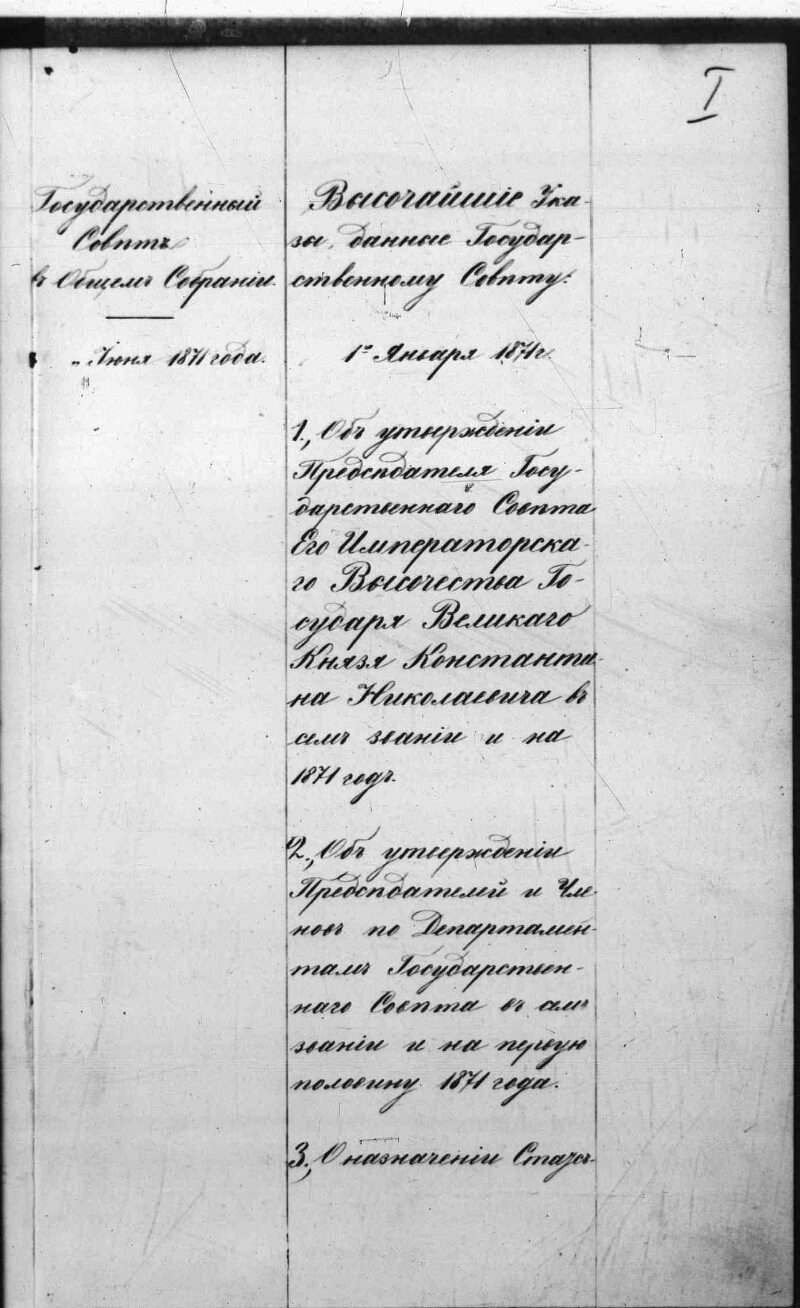 I
Государственный
Совѣтъ
въ Общемъ Собраніи.
„ Июня 1871 года.
Высочайшіе Ука-
зы, данные Государ-
ственному Совѣту:
1го Января 1871 г.
1., Объ утвержденіи
Предсѣдателя Госу-
дарственнаго Совѣта
Его Императорска-
го Высочества Го-
сударя Великаго
Князя Константи-
на Николаевича въ
семъ званіи и на
1871 годъ.
2., Объ утвержденіи
Предсѣдателей и Чле-
новъ по Департамен-
тамъ Государствен-
наго Совѣта въ семъ
званіи и на первую
половину 1871 года.
3., О назначеніи Статсъ-